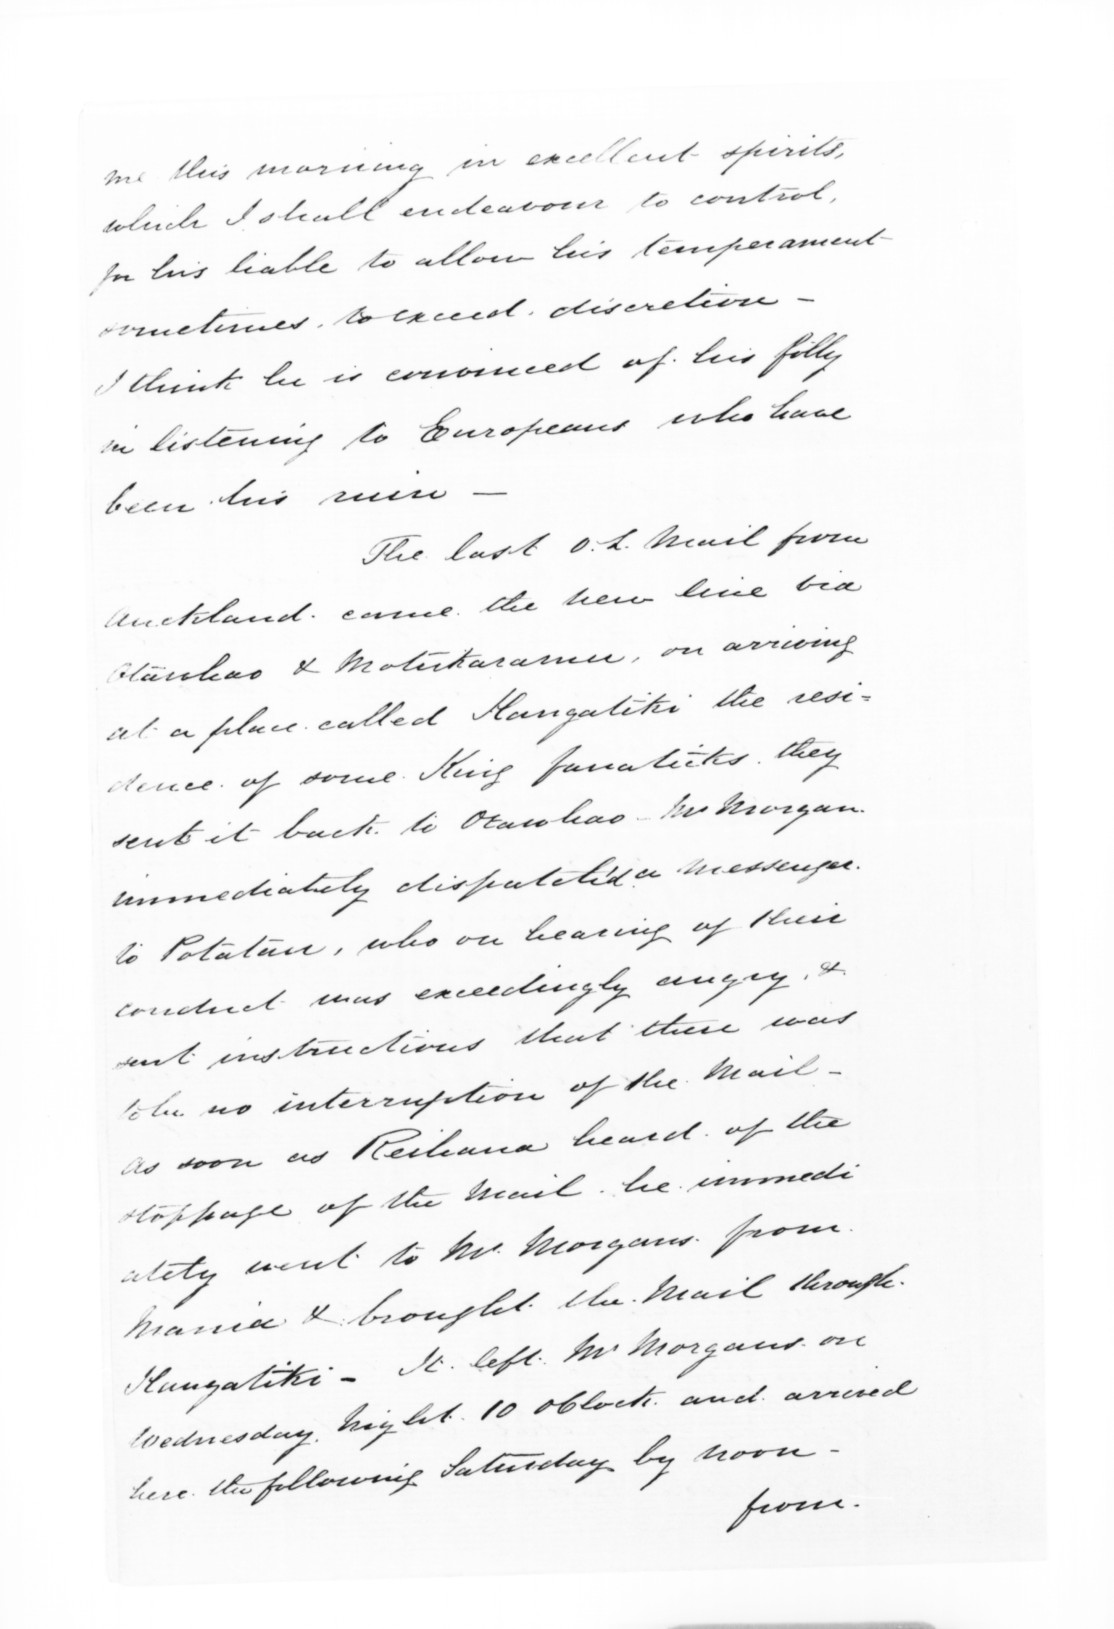 me this morning in excellent spirits,
which I shall endeavour to control,
for his liable to allow his temperament
sometimes to exceed discretion —
I think he is convinced of his folly
in listening to Europeans who have
been his ruin —
The last O.L. Mail from
Auckland came the new line via
Otawhao & Motukaramu, on arriving
at a place called Hangatiki the resi=
dence of some King fanaticks they
sent it back to Otawhao — Mr Morgan
immediately dispatch'd a messenger
to Potatau, who on hearing of their
conduct was exceedingly angry, &
sent instructions that there was
to be no interruption of the Mail —
As soon as Reihana heard of the
stoppage of the Mail he immedi
ately went to Mr. Morgans from
Mania & brought the Mail through
Hangatiki — It left Mr Morgans on
Wednesday Night 10 oClock and arrived
here the following Saturday by noon —
from